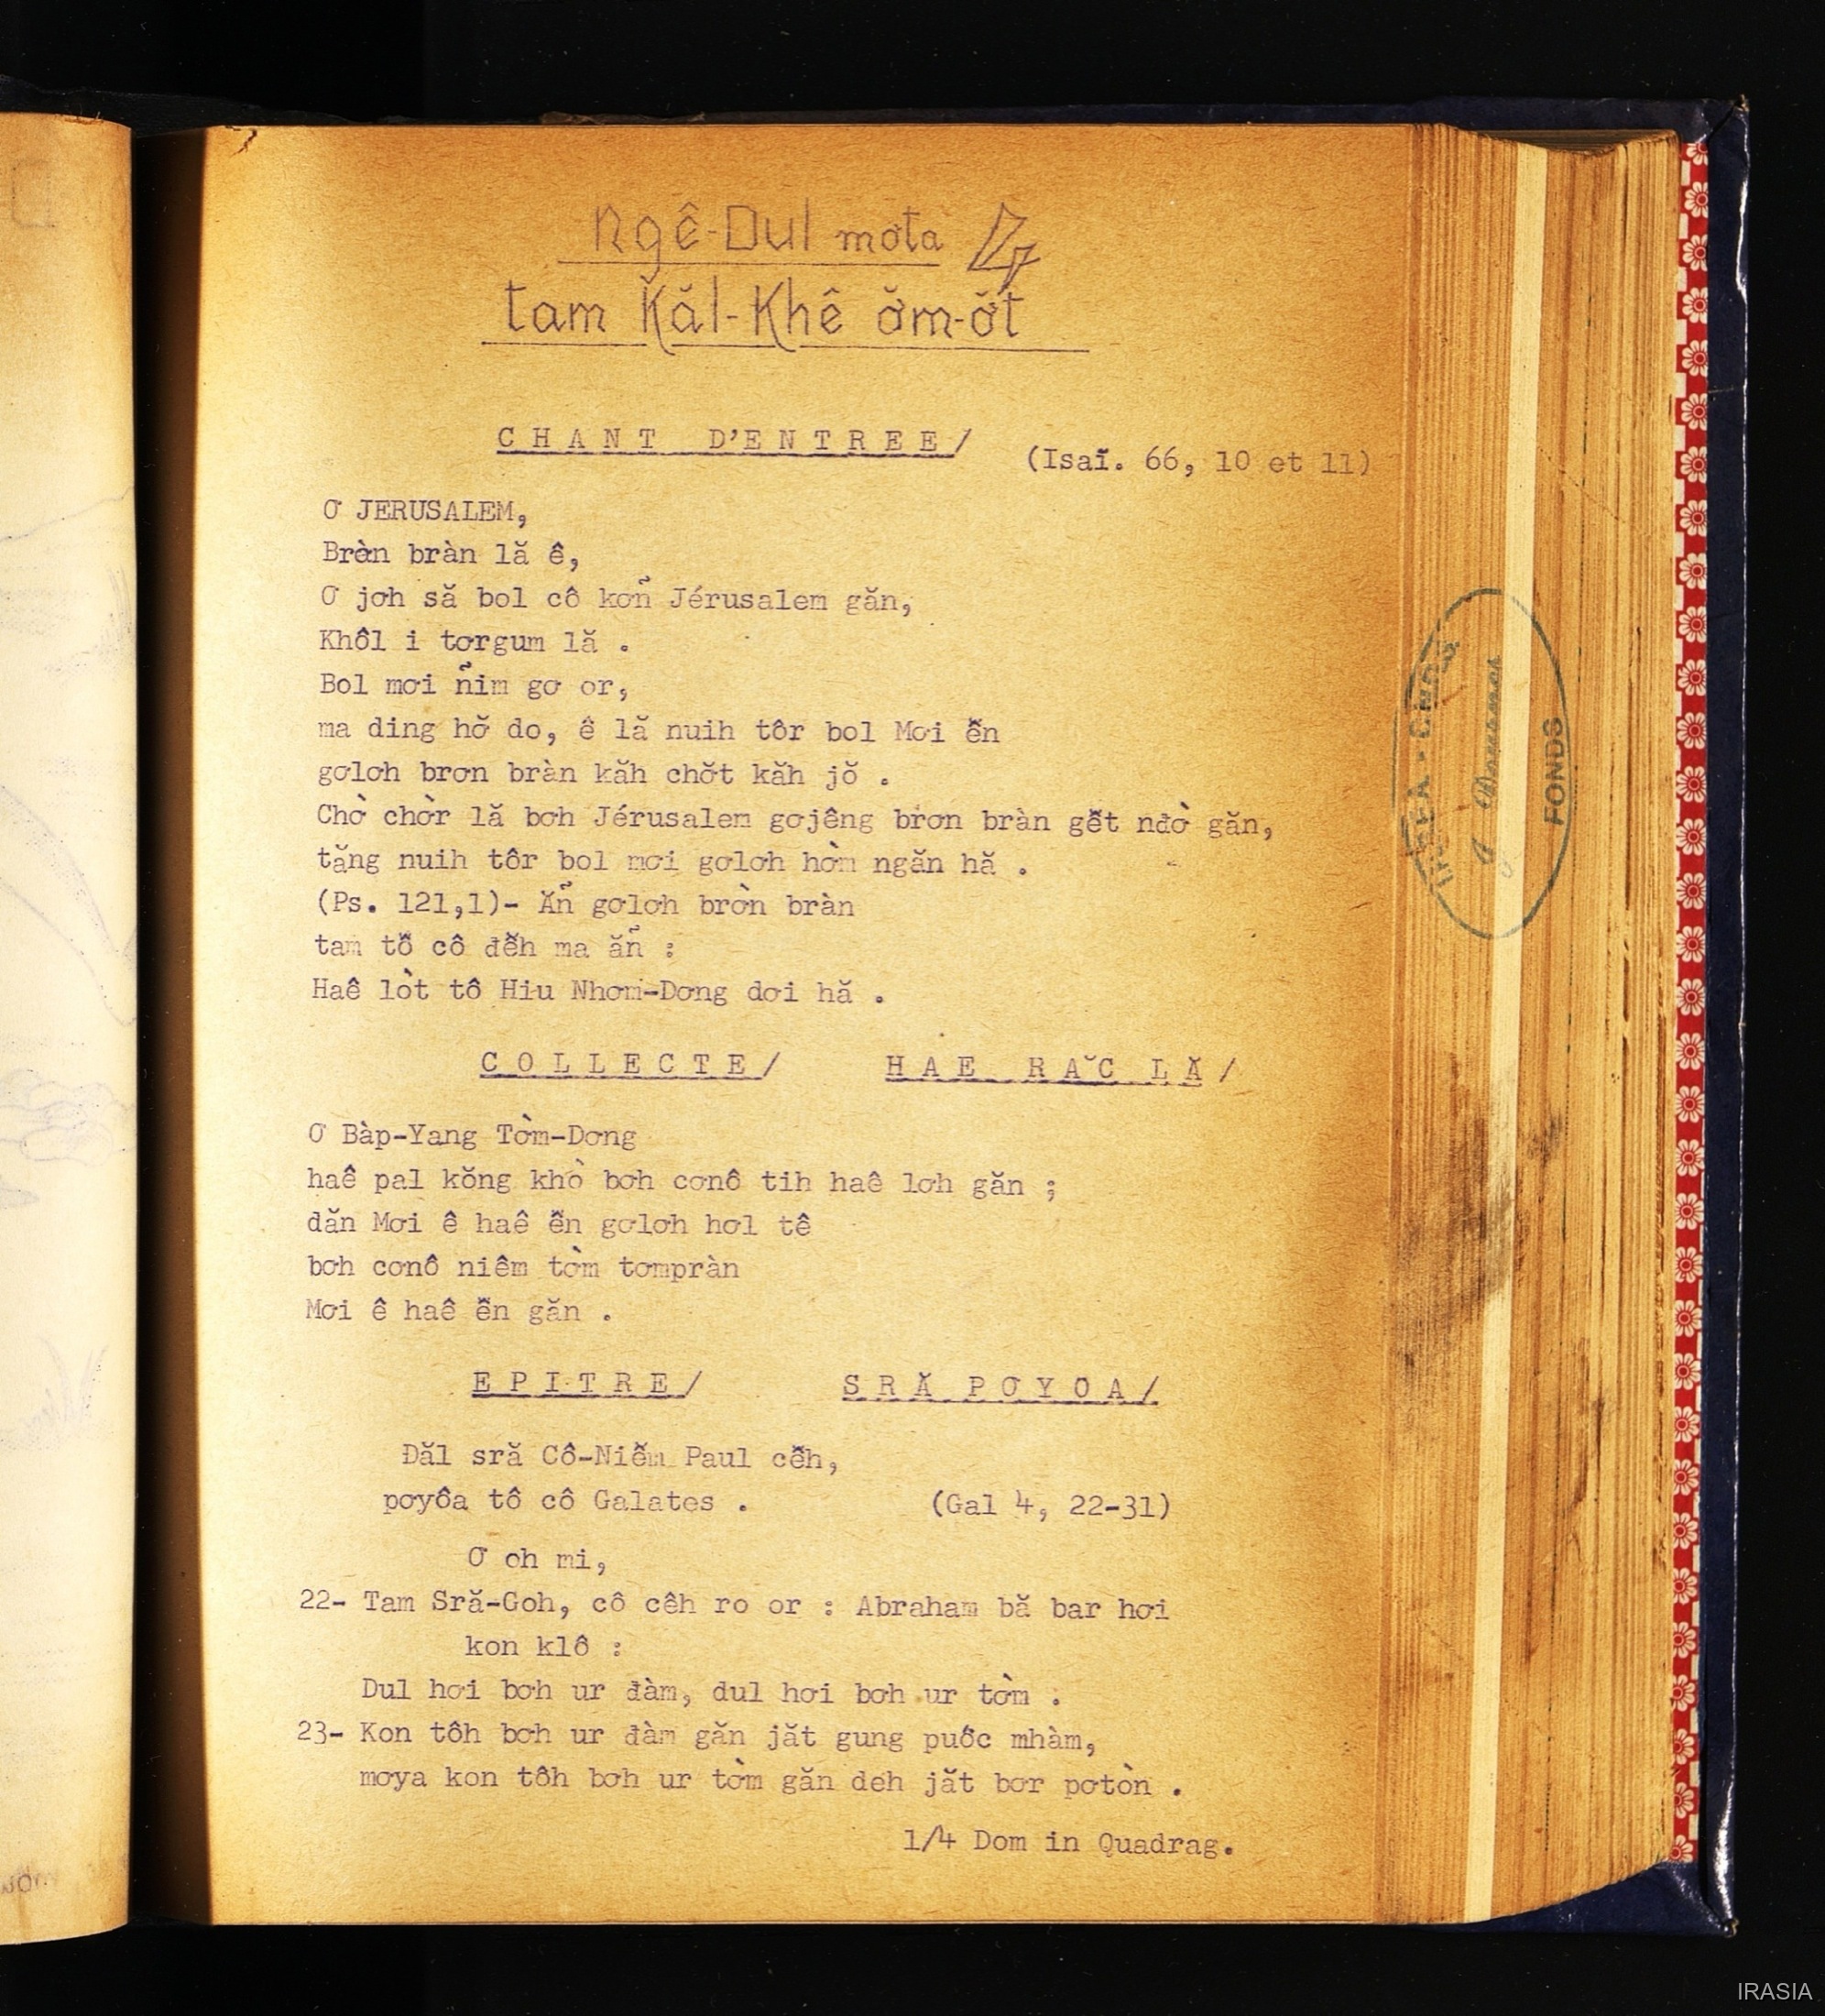 Ngê-Dul mơta 4
tam Kăl-Khê ơ̆m-ơ̆t
CHANT D'ENTREE/
(Isaĭ. 66, 10 et 11)
Ơ JERUSALEM,
Bràn bràn lă ê,
Ơ jơh să bol cô kơn̆̃ Jérusalem găn,
Khôl i tơrgum lă .
Bol mơi n̆̃im gơ or,
ma ding hơ̆ do, ê lă nuih tôr bol Mơi ê̆n
gơlơh brơn bràn kăh chơ̆t kăh jơ̆ .
Chờ chờr lă bơh Jérusalem gơjêng brơn bràn gê̆t nđờ găn,
tặng nuih tôr bol mơi gơlơh hờm ngăn hă .
(Ps. 121,1)- Ăn̆̃ gơlơh bròn bràn
tam tô̆ cô đê̆h ma ăn̆̃ :
Haê lòt tô Hiu Nhơm-Dơng dơi hă .
COLLECTE/
HAE RĂC LĂ/
Ơ Bàp-Yang Tờm-Dơng
haê pal kŏng khò bơh cơnô tih haê lơh găn ;
dăn Mơi ê haê ê̆n gơlơh hơl tê
bơh cơnô niêm tờm tơmpràn
Mơi ê haê ê̆n găn .
EPITRE/
SRĂ PƠYOA/
Đăl sră Cô-Niê̆m Paul cê̆h,
pơyôa tô cô Galates .
(Gal 4, 22-31)
Ơ oh mi,
22- Tam Sră-Goh, cô cêh ro or : Abraham bă bar hơi
kon klô :
Dul hơi bơh ur đàm, dul hơi bơh ur tờm .
23- Kon tôh bơh ur đàm găn jăt gung puôc mhàm,
mơya kon tôh bơh ur tờm găn deh jăt bơr pơtòn .
1/4 Dom in Quadrag.
FONDS
IRASIA